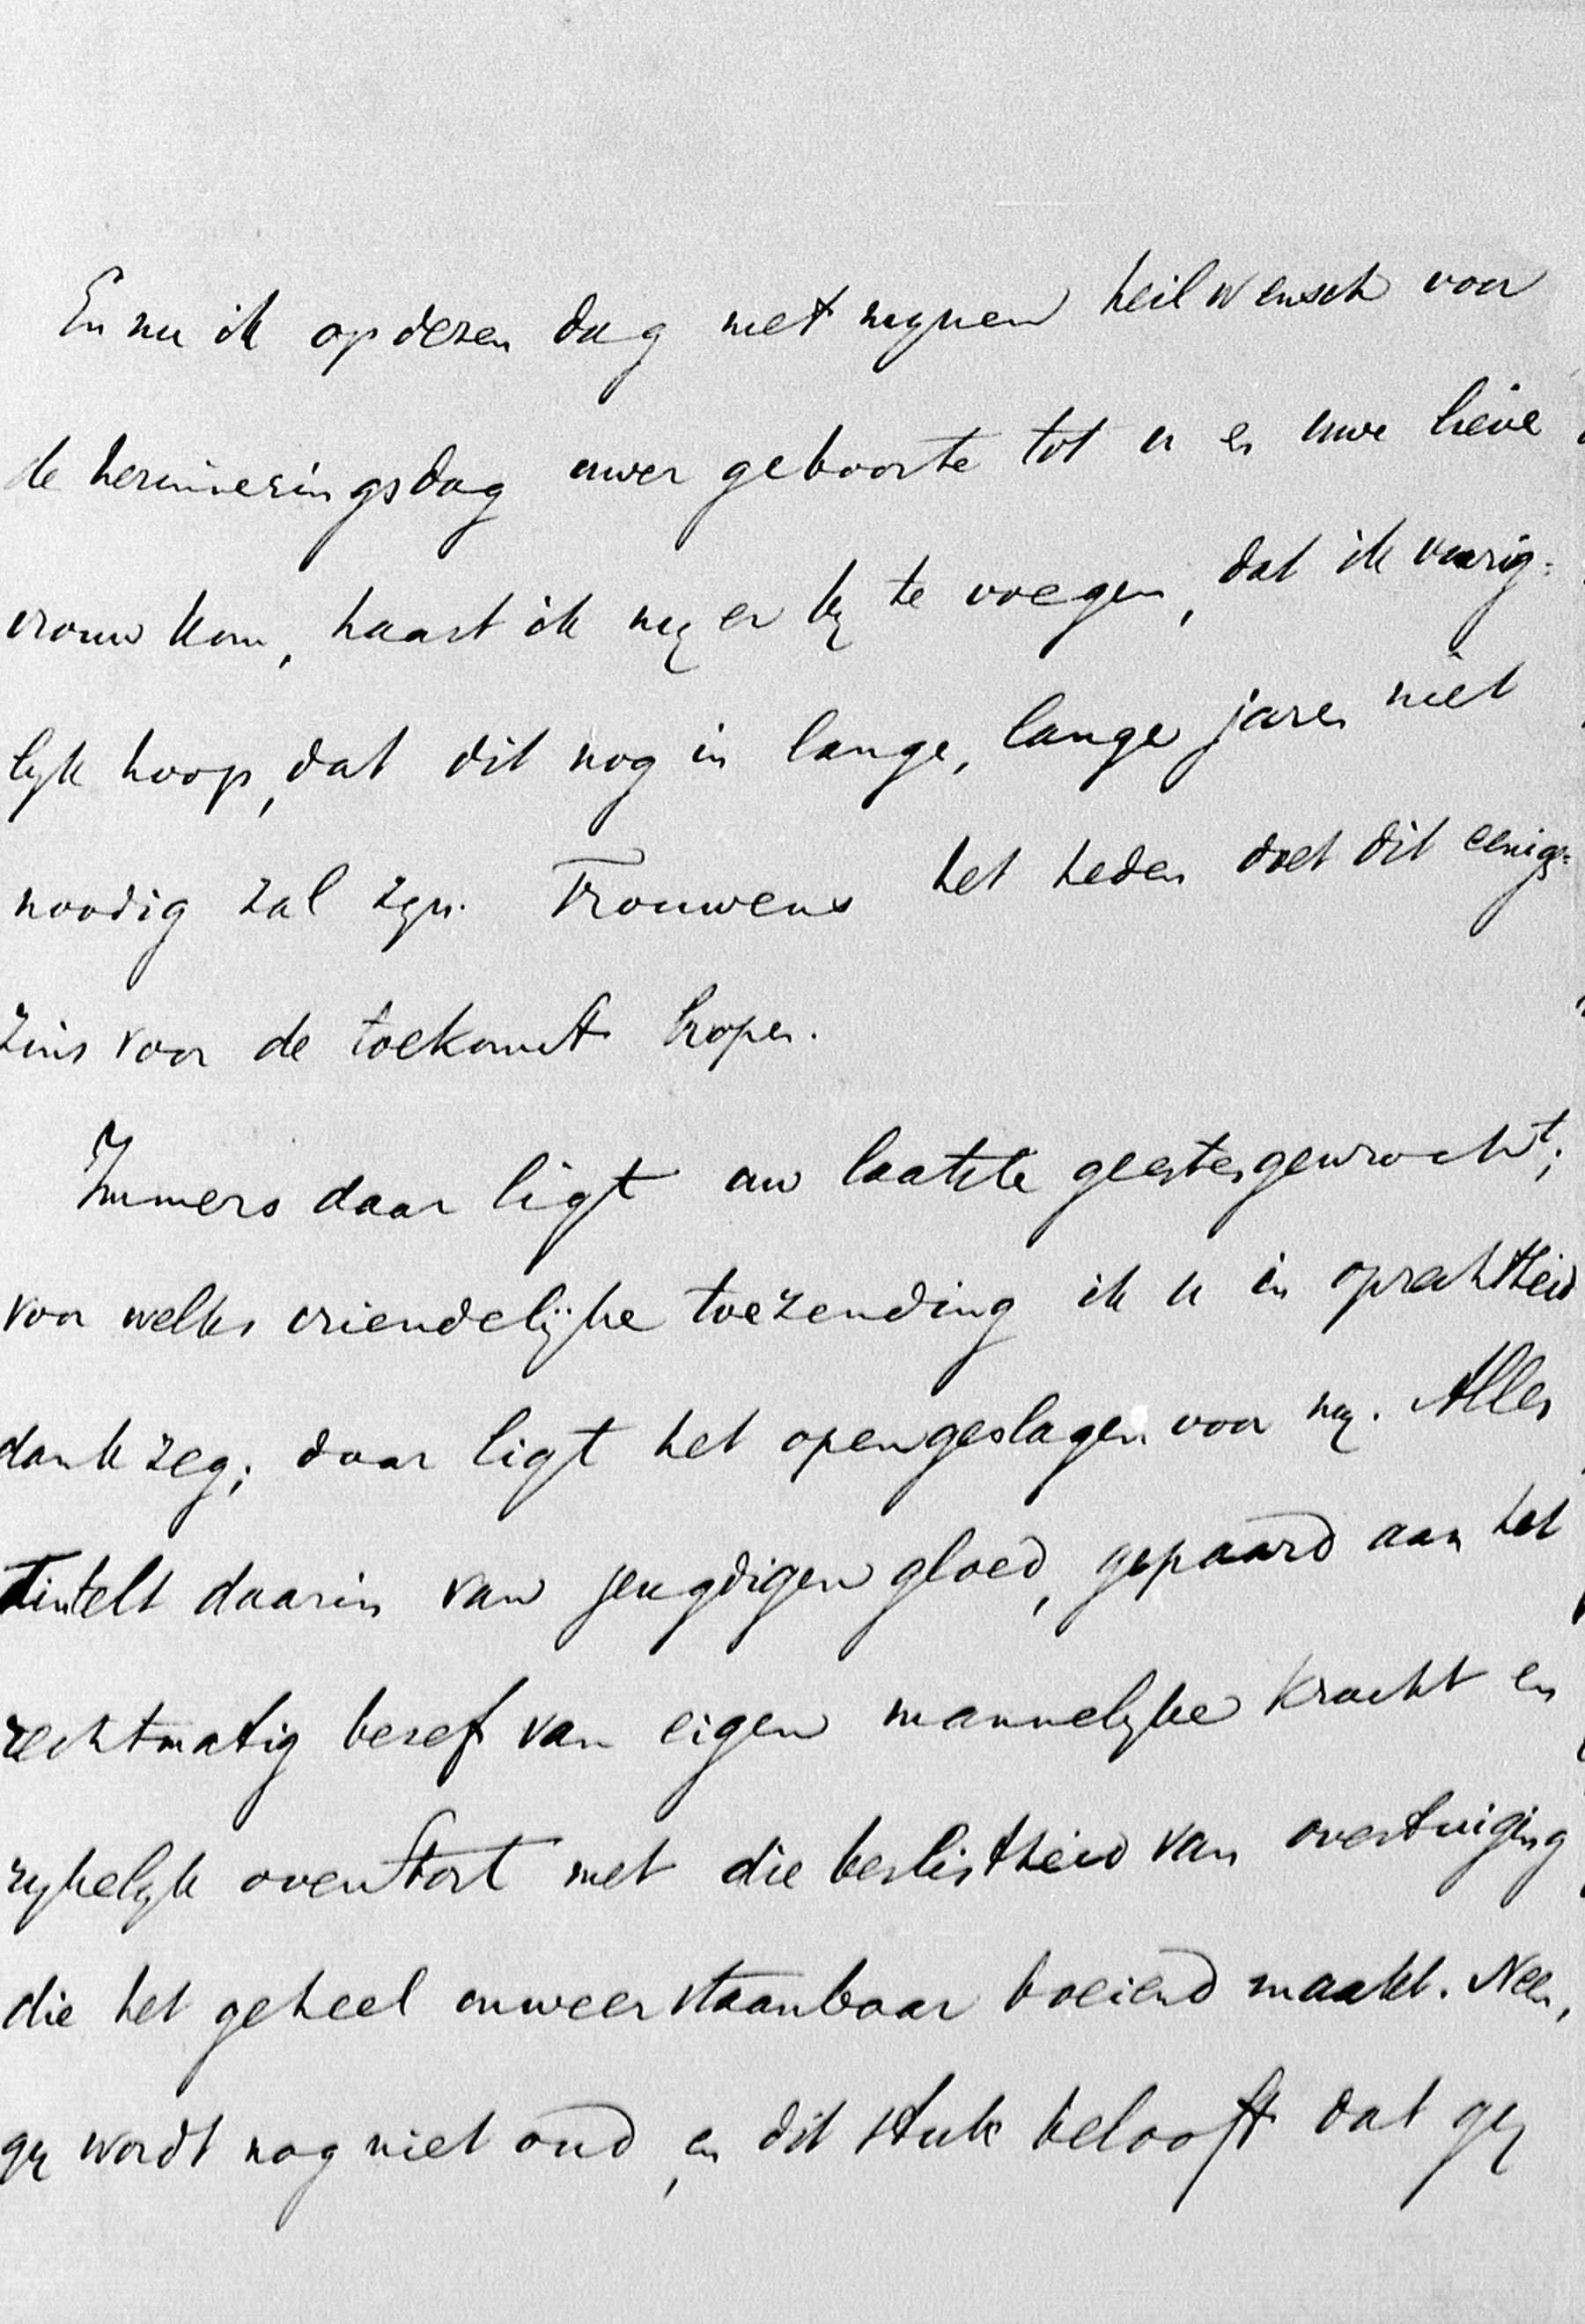 En nu ik op dezen dag met mijnen heilwensch voor
de herinneringsdag uwer geboorte tot u en uwe lieve
vrouw kom, haast ik mij er bij te voegen, dat ik vurig=
lijk hoop, dat dit nog in lange, lange jaren niet
noodig zal zijn. Trouwens het heden doet dit eenigs=
zins voor de toekomst hopen.
Immers daar ligt uw laatste geestesgewrocht;
voor welks vriendelijke toezending ik u in oprechtheid
dank zeg; daar ligt het opengeslagen voor mij. Alles
tintelt daarin van jeugdigen gloed, gepaard aan het
rechtmatig besef van eigen mannelijke kracht en
rijkelijk overstort met die beslistheid van overtuiging
die het geheel onweerstaanbaar boeiend maakt. Neen,
gij wordt nog niet oud, en dit stuk belooft dat gij